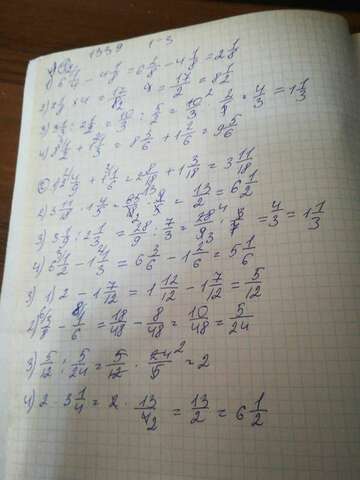 1339 1-3
1) 6 1/4 - 4 1/8 = 6 2/8 - 4 1/8 = 2 1/8
2) 2 1/8 × 4 = 17/8 · 4 = 17/2 = 8 1/2
3) 3 1/3 : 2 1/2 = 10/3 : 5/2 = 10/3 · 2/5 = 4/3 = 1 1/3
4) 8 1/2 + 1 1/3 = 8 3/6 + 1 2/6 = 9 5/6
+ 1 3/18 = 3 11/18
= 13/2 = 6 1/2
3) 3 1/9 : 2 1/3 = 28/9 : 7/3 = 28/9 · 3/7 = 4/3 = 1 1/3
4) 6 1/2 - 1 1/3 = 6 3/6 - 1 2/6 = 5 1/6
3) 1) 2 - 1 7/12 = 1 12/12 - 1 7/12 = 5/12
2) 3/8 - 1/6 = 18/48 - 8/48 = 10/48 = 5/24
3) 5/12 : 5/24 = 5/12 · 24/5 = 2
4) 2 · 3 1/4 = 2 · 13/4 = 13/2 = 6 1/2